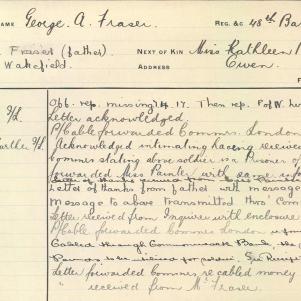 NAME George. A. Fraser. REG. & C 48th Ba
Fraser (father) NEXT OF KIN Miss Kathleen
Wakefield. ADDRESS Owen.
Off. rep. missing 4. 17. Then rep. P of W.
Letter acknowledged.
P/Cable forwarded Commrs. London
Acknowledged intimating having received
Commrs stating above soldier is a Prisoner of
forwarded Miss
Letter of thanks from father with message
Message to above transmitted thro' Com
Letter received from Inquirer with enclosure
P/Cable forwarded Commrs London
Cabled through Commonwealth Bank, the
Letter forwarded Commrs re cabled money
" received from Mr Fraser